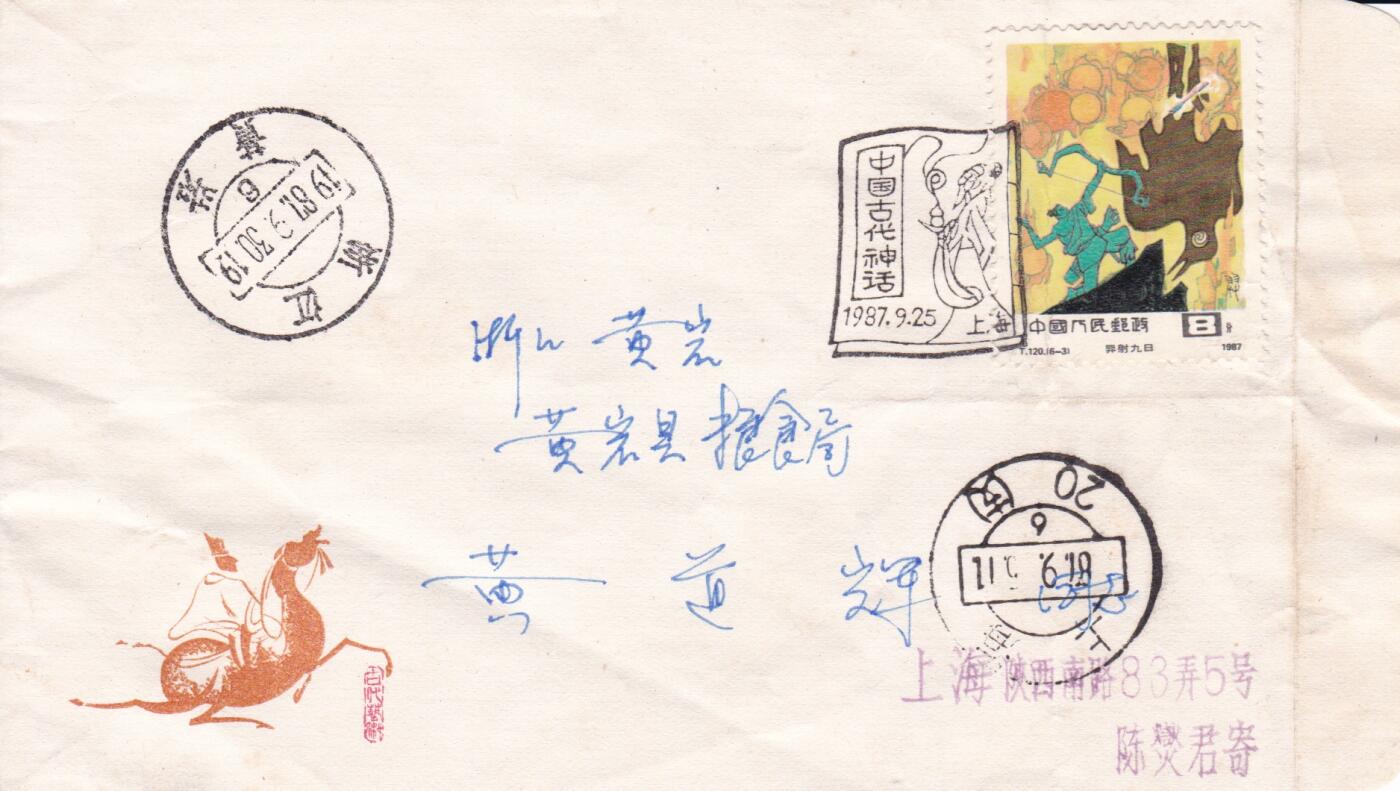 中国古代神话
1987.9.25 上海
中國人民郵政 8分
T.120.(6-3) 羿射九日 1987
浙江
黄岩
6
1987.9.30.19
浙江 黄岩
黄岩县粮食局
黄道辉
20
6
上海
上海陕西南路83弄5号
陈燮君寄
古代藝術